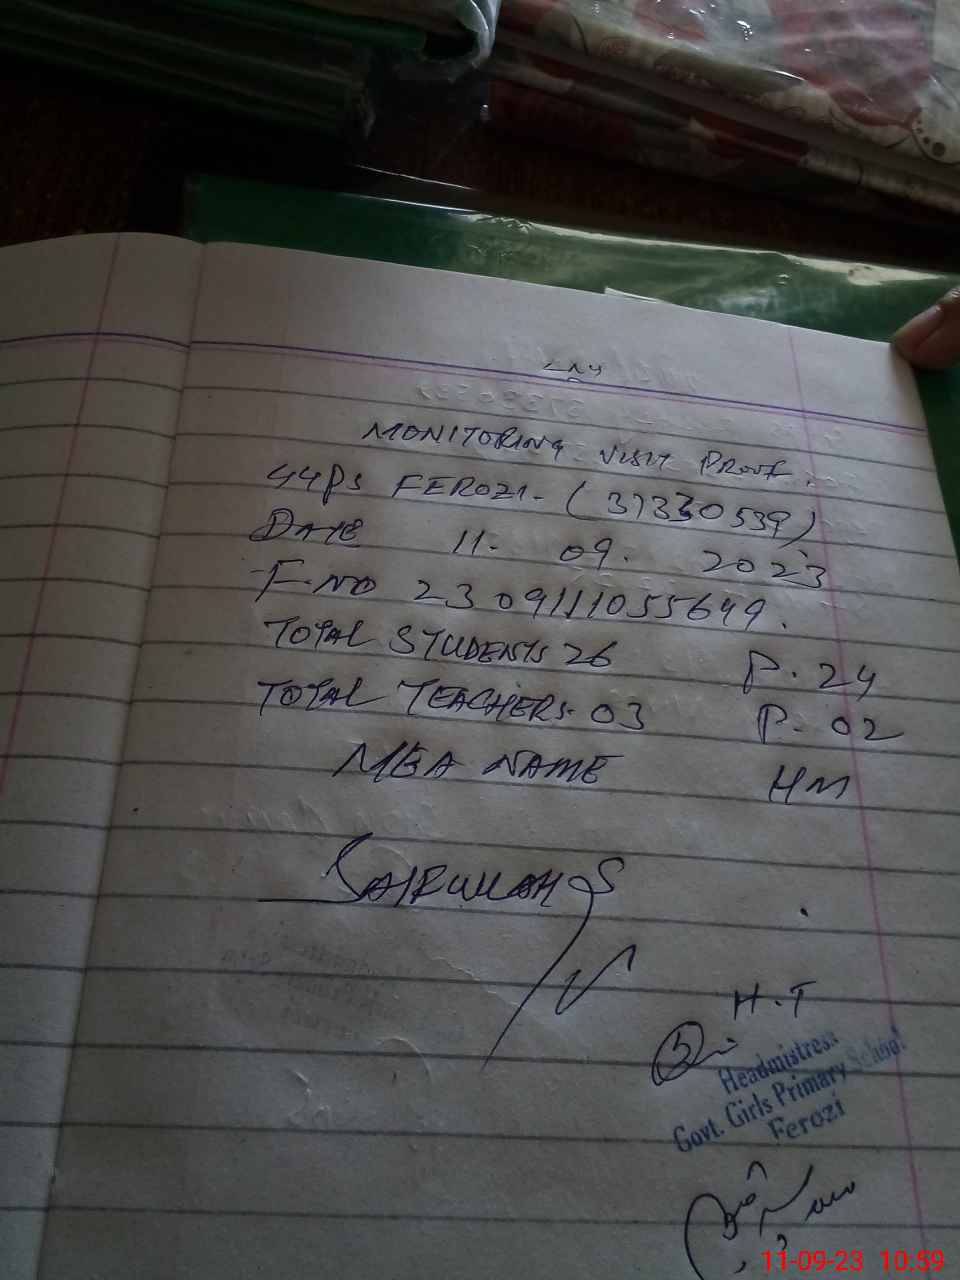 MONITORING VISIT PROOF:
GGPS FEROZI - (37330539)
DATE 11. 09. 2023
F.NO 2309111055649.
TOTAL STUDENTS 26 P. 24
TOTAL TEACHERS. 03 P. 02
MEA NAME HM
H.T
Headmistress
Govt. Girls Primary School
Ferozi
11-09-23 10:59